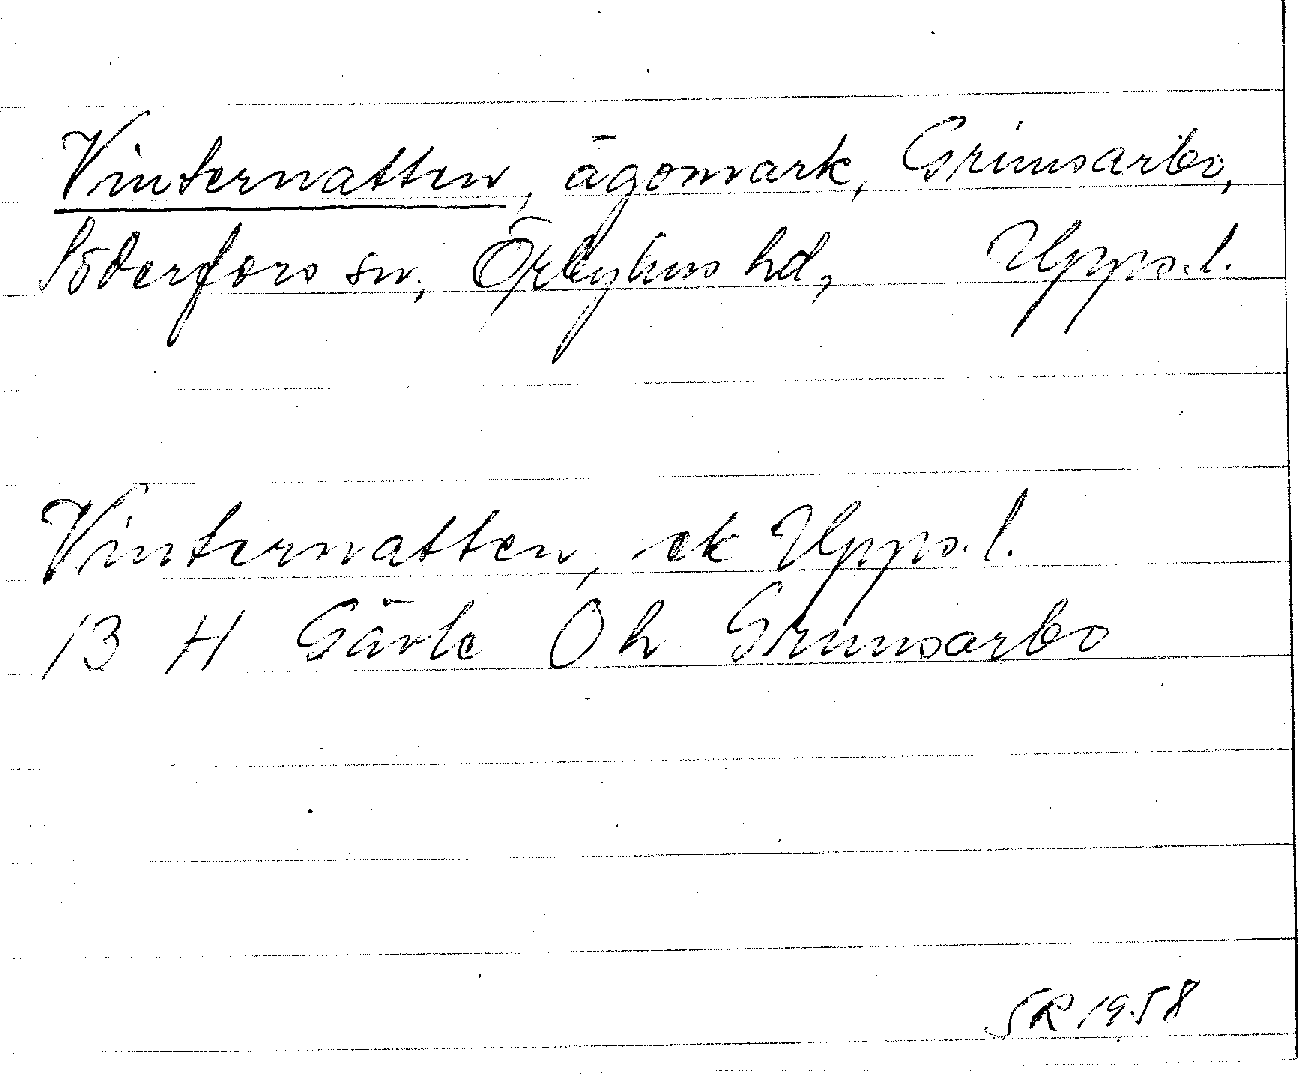 Vinternatten, ägomark, Grimsarbo,
Söderfors sn, Örbyhus hd, Upps.l.
Vinternatten, ek Upps.l.
13 H Gävle Oh Grimsarbo
SR 1958